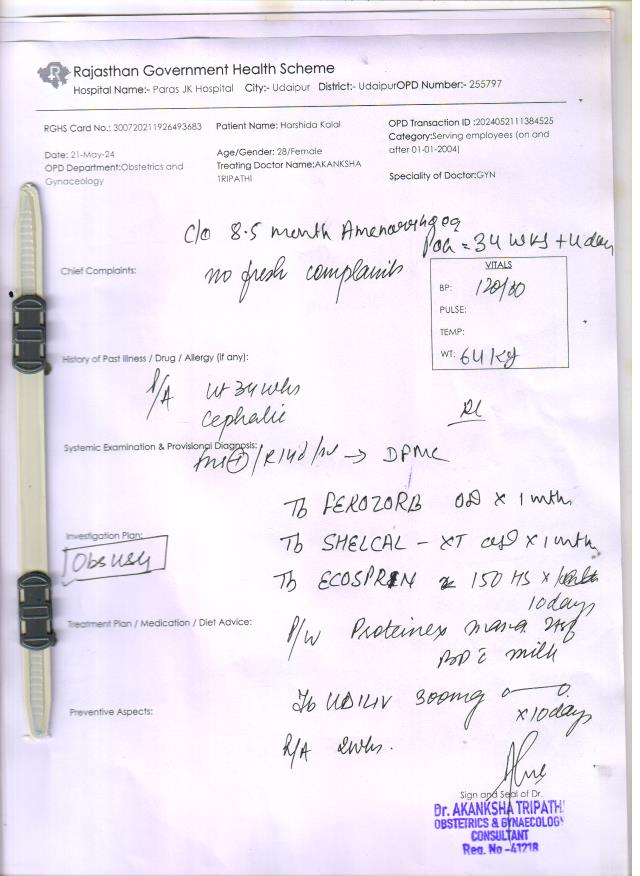 Rajasthan Government Health Scheme
Hospital Name:- Paras JK Hospital City:- Udaipur District:- UdaipurOPD Number:- 255797
RGHS Card No.: 300720211926493683
Patient Name: Harshida Kalal
OPD Transaction ID :2024052111384525
Category:Serving employees (on and
after 01-01-2004)
Date: 21-May-24
Age/Gender: 28/Female
OPD Department:Obstetrics and
Gynaceology
Treating Doctor Name:AKANKSHA
TRIPATHI
Speciality of Doctor:GYN
c/o 8.5 month Amenorrhoea
POG = 34 wks + 4 day
Chief Complaints:
no fresh complaints
VITALS
BP: 120/80
PULSE:
TEMP:
WT: 64 Kg
History of Past Illness / Drug / Allergy (if any):
P/A ut 34 wks
cephalic
Systemic Examination & Provisional Diagnosis:
→ DFMC
Tb FEROZORB OD x 1 mth
Investigation Plan:
Obs USG
Tb SHELCAL - XT OD x 1 mth
Tb ECOSPRIN 150 HS x
10 days
Treatment Plan / Medication / Diet Advice:
P/W Proteinex mama 2tsf
BD c milk
Preventive Aspects:
Tb UDILIV 300mg 0—0
x 10 days
R/A 2wks.
Sign and Seal of Dr.
Dr. AKANKSHA TRIPATHI
OBSTETRICS & GYNAECOLOGY
CONSULTANT
Reg. No -41218